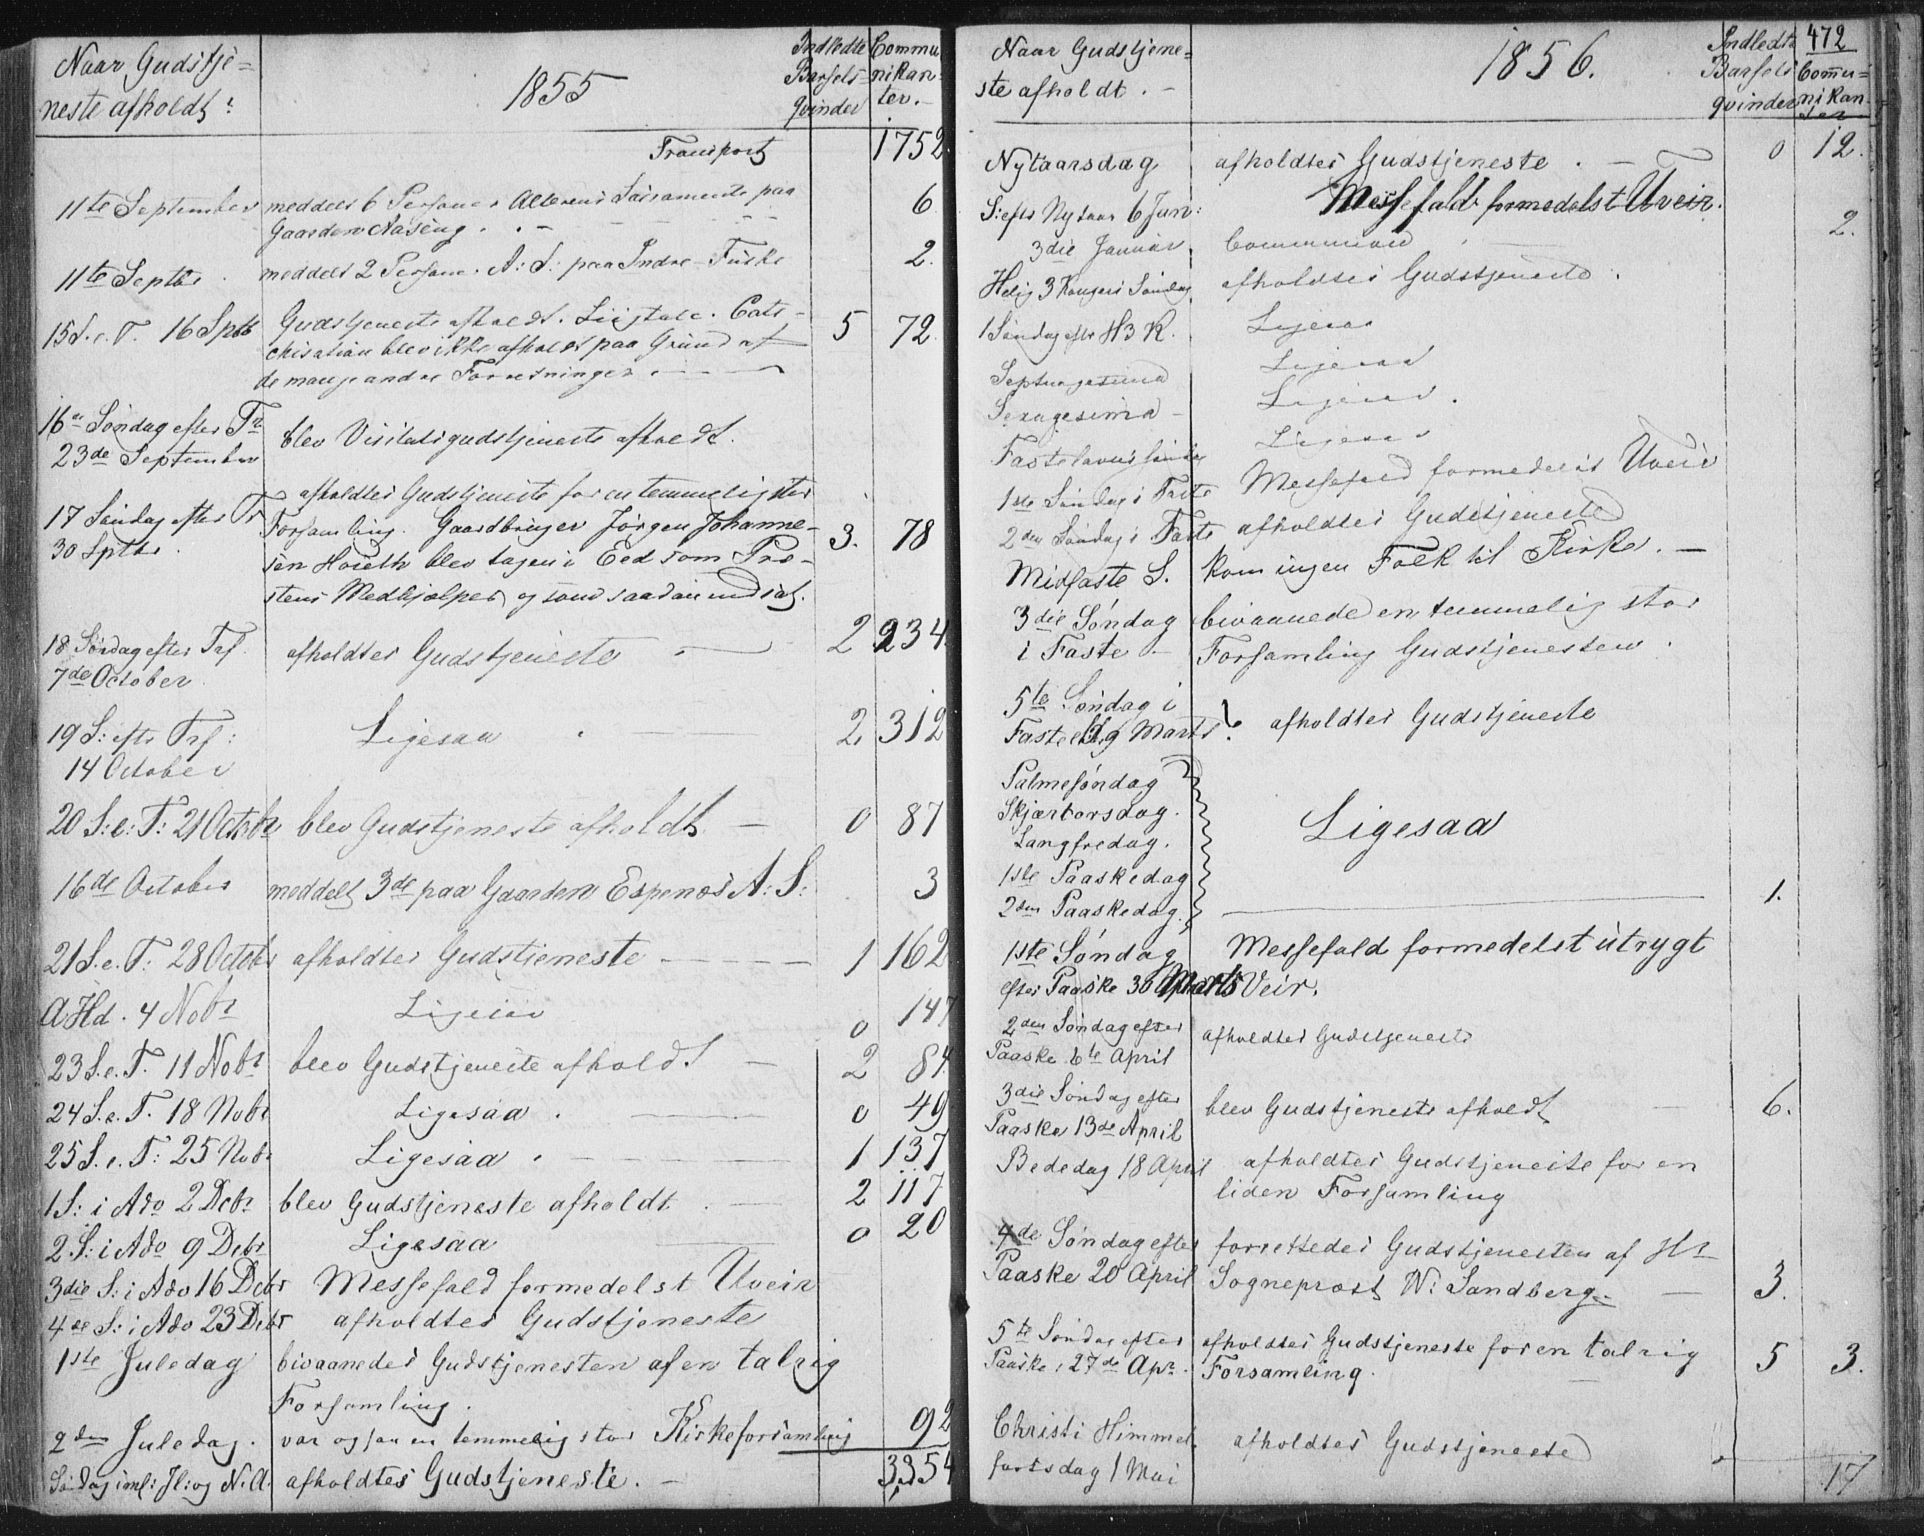 Naar Gudstje=
neste afholdt:
1855
Indledte
Barsels-
qvinder
Commu
nikan-
ter.-
Transport 1752
11te September meddelt 6 Personer Alterens Sacramente paa 6
Gaarden Aaseng . . -
11te Septbr. meddelt 2 Persone. A: S: paa Indre- 2.
15 S. e. T. 16 Sptb Gudstjeneste afholdt. Liigtale. Cate- 5 72.
chisation blev ikke afholdt paa Grund af
de mange andre Forretninger . -
16de Søndag efter Tr. blev Visitatsgudstjeneste afholdt.
23de September
17 Søndag efter Tr afholdtes Gudstjeneste for en temmelig stor
30 Sptbr. Forsamling. Gaardbruger Jørgen Johanne- 3. 78
sen blev tagen i Eed som Præ-
stens Medhjælper og som saadan indsat.
18 Søndag efter Trf. afholdtes Gudstjeneste - 2 234
7de October
19 S: eftr Trf: Ligesaa . - 2, 312
14 October
20 S: e: T: 21 Octobr blev Gudstjeneste afholdt - 0 87
16de October meddelt 3de paa Gaarden Espenæs A: S: 3
21 S. e. T: 28 Octobr afholdtes Gudstjeneste - 1 162
A Hd. 4 Nobr Ligesaa 0 147
23 S. e. T. 11 Nobr blev Gudstjeneste afholdt - 2 84
24 S. e. T. 18 Nobr Ligesaa . - 0 49
25 S. e. T: 25 Nobr Ligesaa . - 1 137
1 S: i Adv 2 Decbr blev Gudstjeneste afholdt . - 2 117
2. S: i Adv 9 Debr Ligesaa - 0 20
3die S: i Adv 16 Debr Messefald formedelst Uveir
4de S: i Adv 23 Debr afholdtes Gudstjeneste
1ste Juledag bivaanedes Gudstjenesten af en talrig
Forsamling.
2den Juledag. var ogsaa en temmelig stor Kirkeforsamling 92
Søndag iml: Jl: og N. A. afholdtes Gudstjeneste. - 3354
Naar Gudstjene=
ste afholdt. -
1856.
Indledte
Barsels
qvinder
472
Commu=
nikan-
ter
Nytaarsdag afholdtes Gudstjeneste . - 0 12.
S: eftr Nytaar 6 Jan: Messefald formedelst Uveir.
3die Januar. Communion 2.
Helig 3 Kongers Søndag afholdtes Gudstjeneste.
1 Søndag eftr H 3 K. Ligesaa
Septuagesima Ligesaa
Sexagesima - Ligesaa.
Fastelavns Søndag Ligesaa
1ste Søndag i Faste Messefald formedelst Uveir
2den Søndag i Faste afholdtes Gudstjeneste
Midfaste S. kom ingen Folk til Kirke. -
3die Søndag bivaanede en temmelig stor
i Faste - Forsamling Gudstjenesten .
5te Søndag i
Faste 9 Marts afholdtes Gudstjeneste
Palmesøndag
Skjærtorsdag.
Langfredag. Ligesaa
1ste Paaskedag
2den Paaskedag. 1.
1ste Søndag Messefald formedelst utrygt
efter Paaske 30 Marts Veir.
2den Søndag efter afholdtes Gudstjeneste
Paaske 6te April
3die Søndag efter blev Gudstjeneste afholdt - 6.
Paaske 13de April
Bededag 18 April afholdtes Gudstjeneste for en
liden Forsamling
4de Søndag efter forrettedes Gudstjenesten af Hr
Paaske 20 April Sogneprest W: Sandberg. - 3.
5te Søndag efter afholdtes Gudstjeneste for en talrig
Paaske, 27de Apr. Forsamling. 5 3.
Christi Himmel afholdtes Gudstjeneste
fartsdag 1 Mai 17